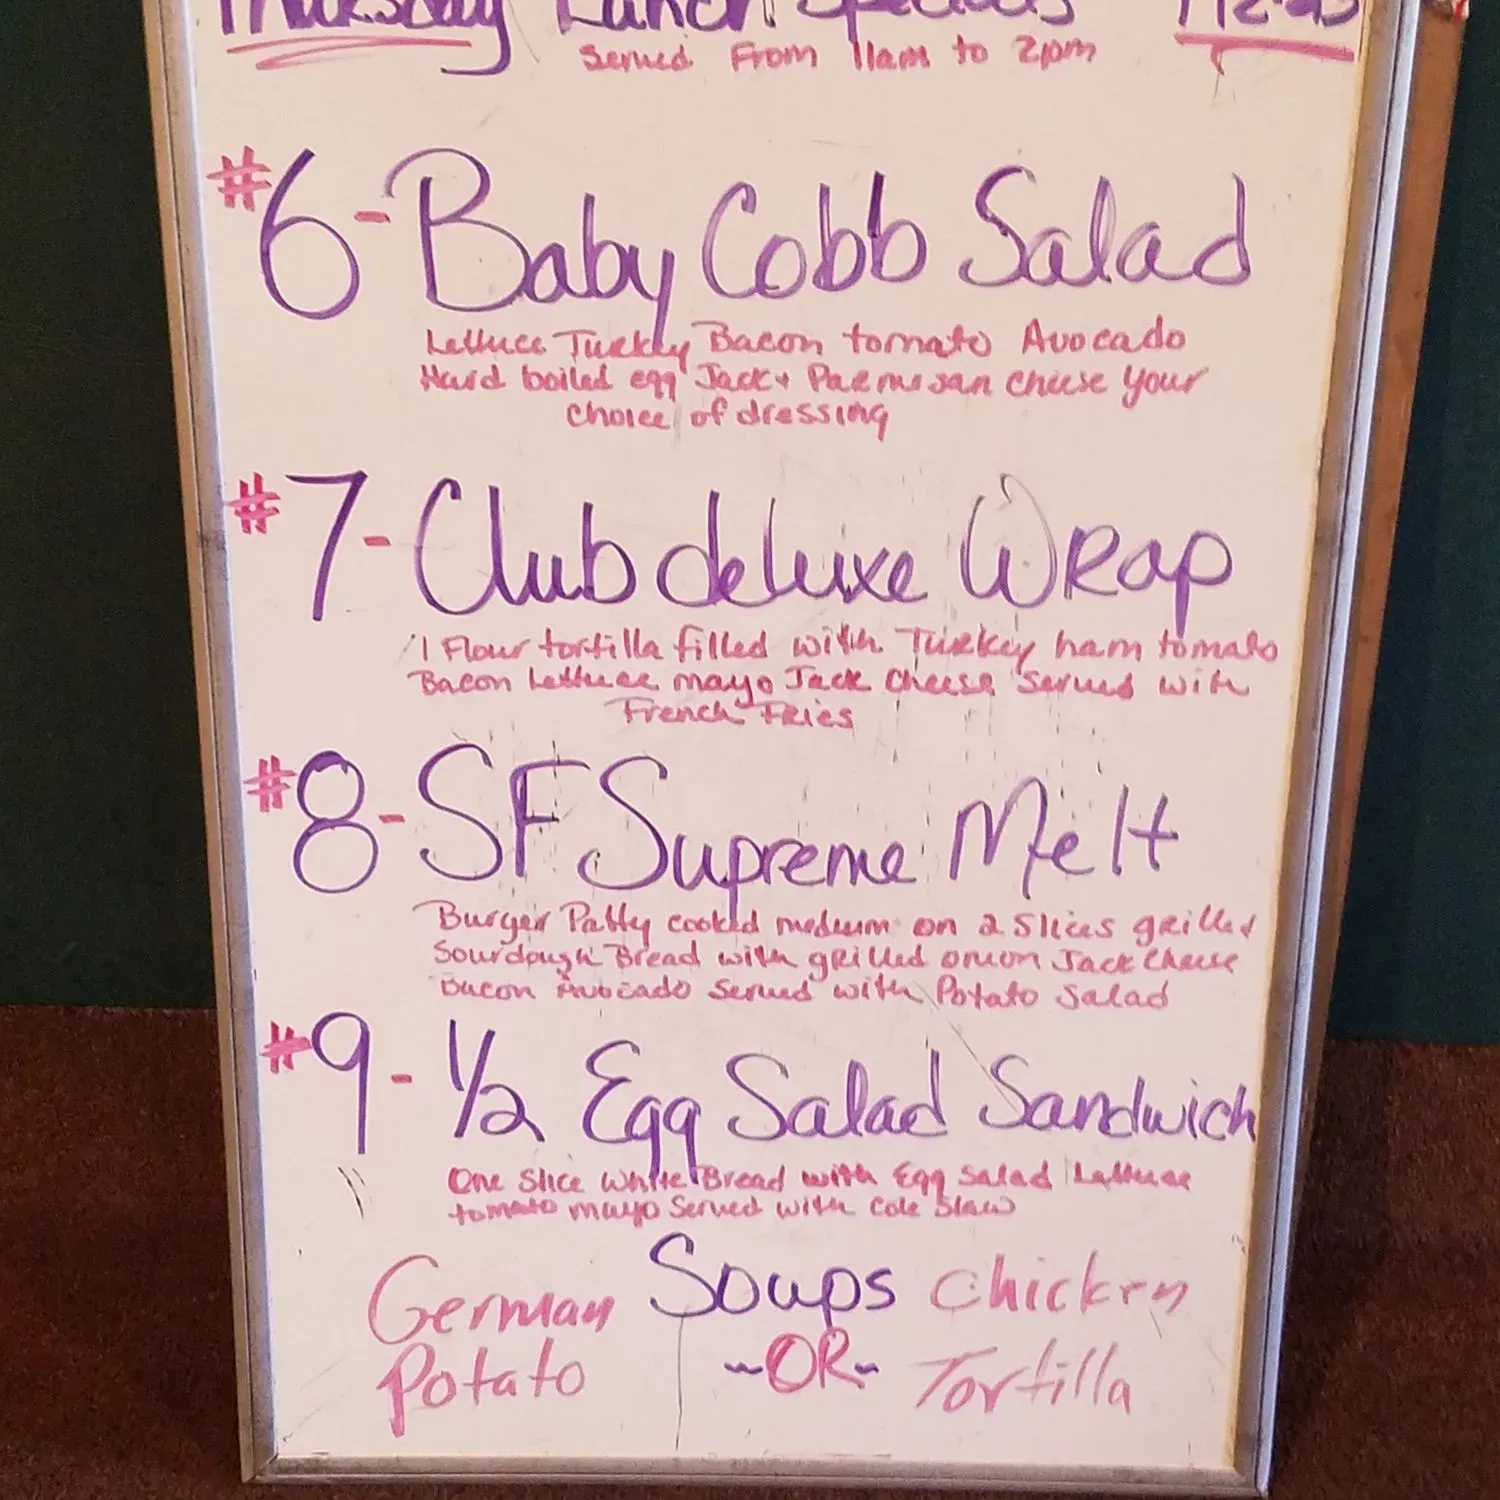 Thursday Lunch Specials
Served From 11am to 2pm
#6- Baby Cobb Salad
Lettuce Turkey Bacon tomato Avocado
Hard boiled egg Jack + Parmesan cheese Your
choice of dressing
#7- Club deluxe Wrap
1 Flour tortilla filled with Turkey ham tomato
Bacon Lettuce mayo Jack cheese Served with
French Fries
#8- SF Supreme Melt
Burger Patty cooked medium on 2 Slices grilled
Sourdough Bread with grilled onion Jack Cheese
Bacon Avocado Served with Potato Salad
#9- 1/2 Egg Salad Sandwich
One Slice White Bread with Egg Salad Lettuce
tomato mayo Served with Cole Slaw
Soups
German Potato
~OR~
Chicken Tortilla